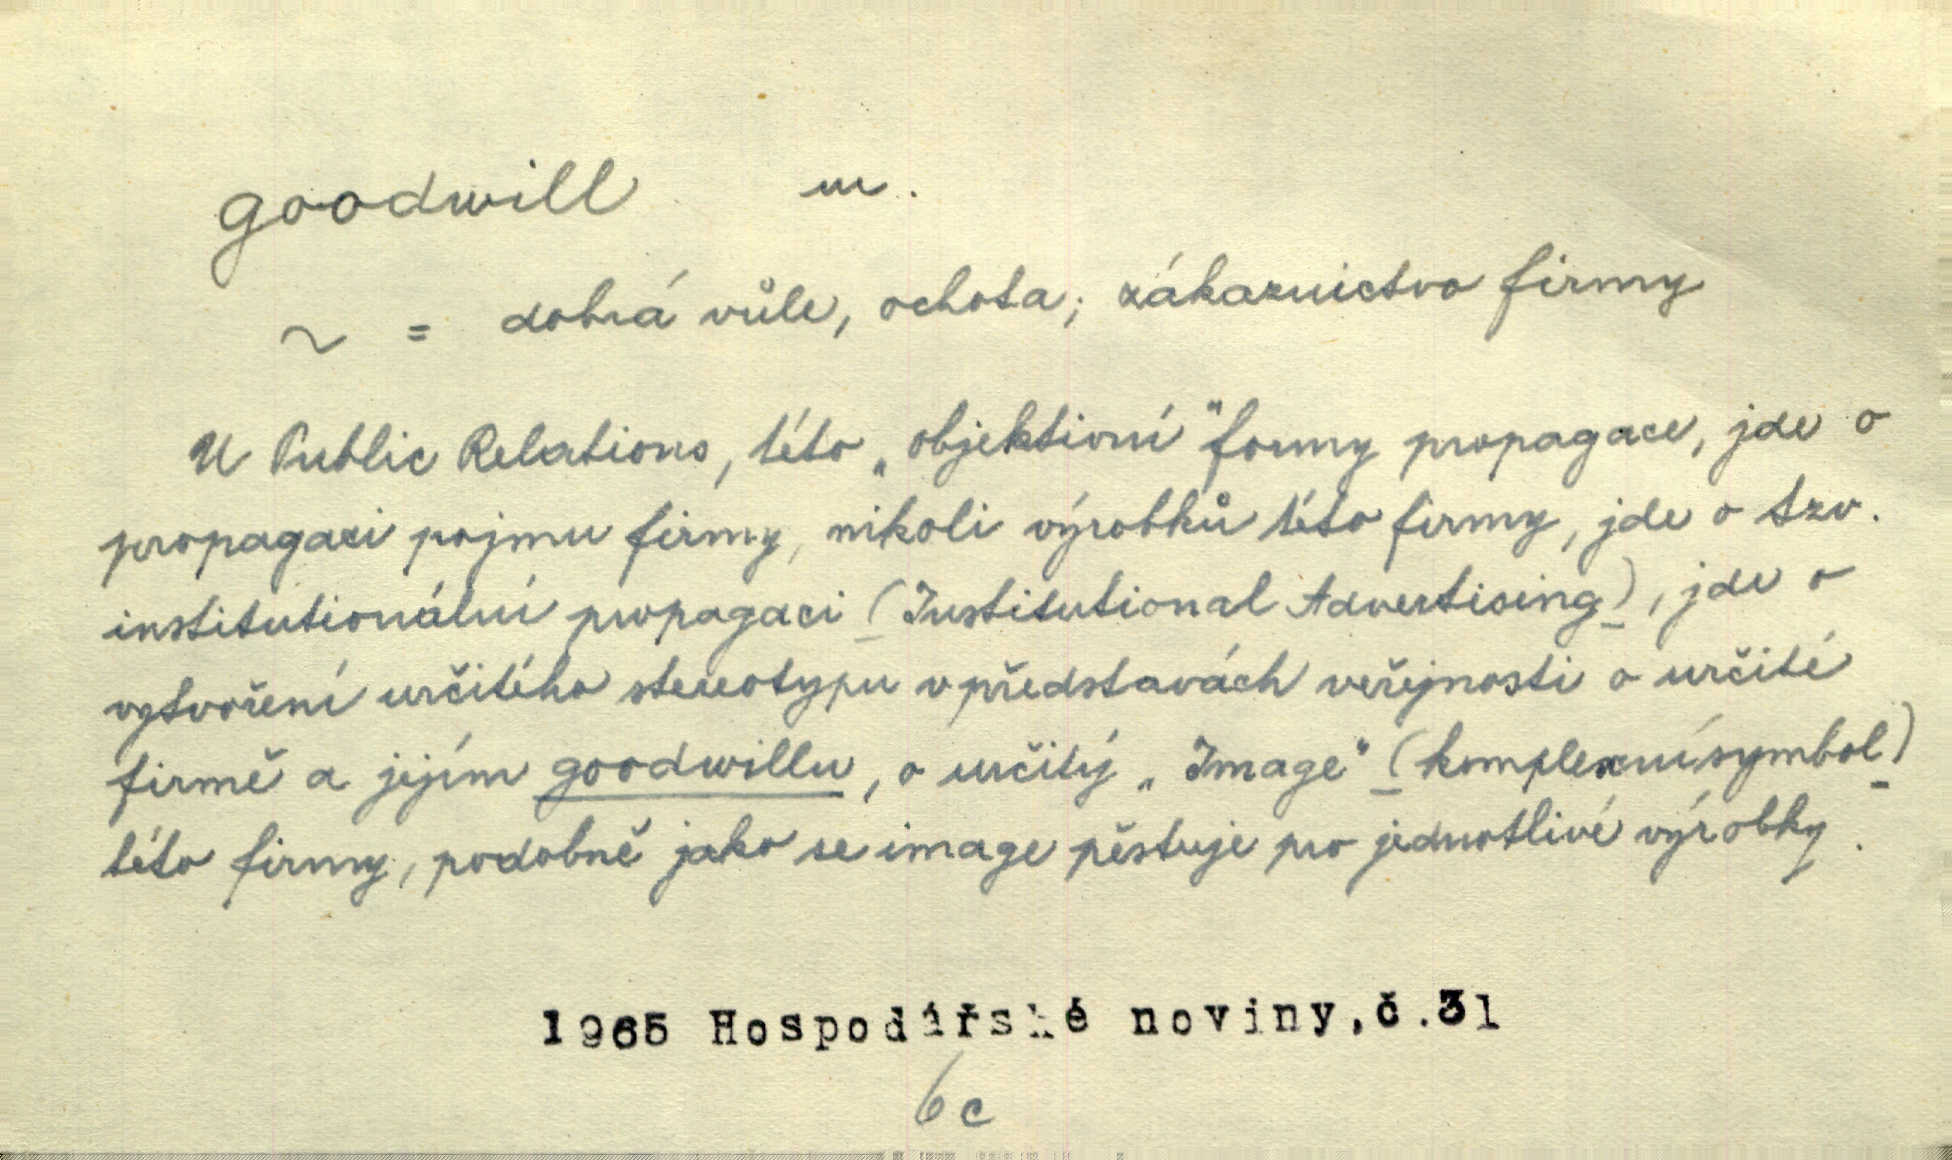 goodwill m.
~ = dobrá vůle, ochota; zákaznictvo firmy
U Public Relations, této „objektivní" formy propagace, jde o
propagaci pojmu firmy, nikoli výrobků této firmy, jde o tzv.
institutionální propagaci (Institutional Advertising), jde o
vytvoření určitého stereotypu v představách veřejnosti o určité
firmě a jejím goodwillu, o určitý „Image" (komplexní symbol)
této firmy, podobně jako se image pěstuje pro jednotlivé výrobky.
1965 Hospodářské noviny,č.31
6c